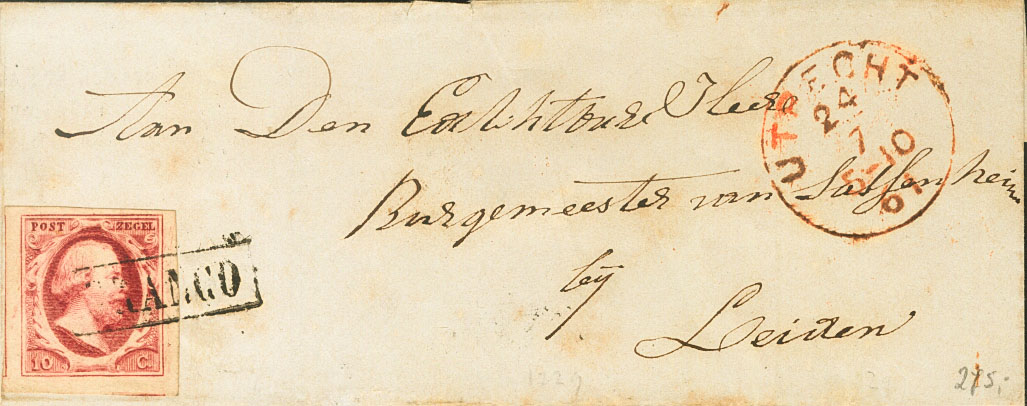 Aan Den Eedelachtbare Heere
Burgemeester van Sassenheim
bij
Leiden
UTRECHT
24
7
8-10
61
POST ZEGEL
10 C.
FRANCO
275,-